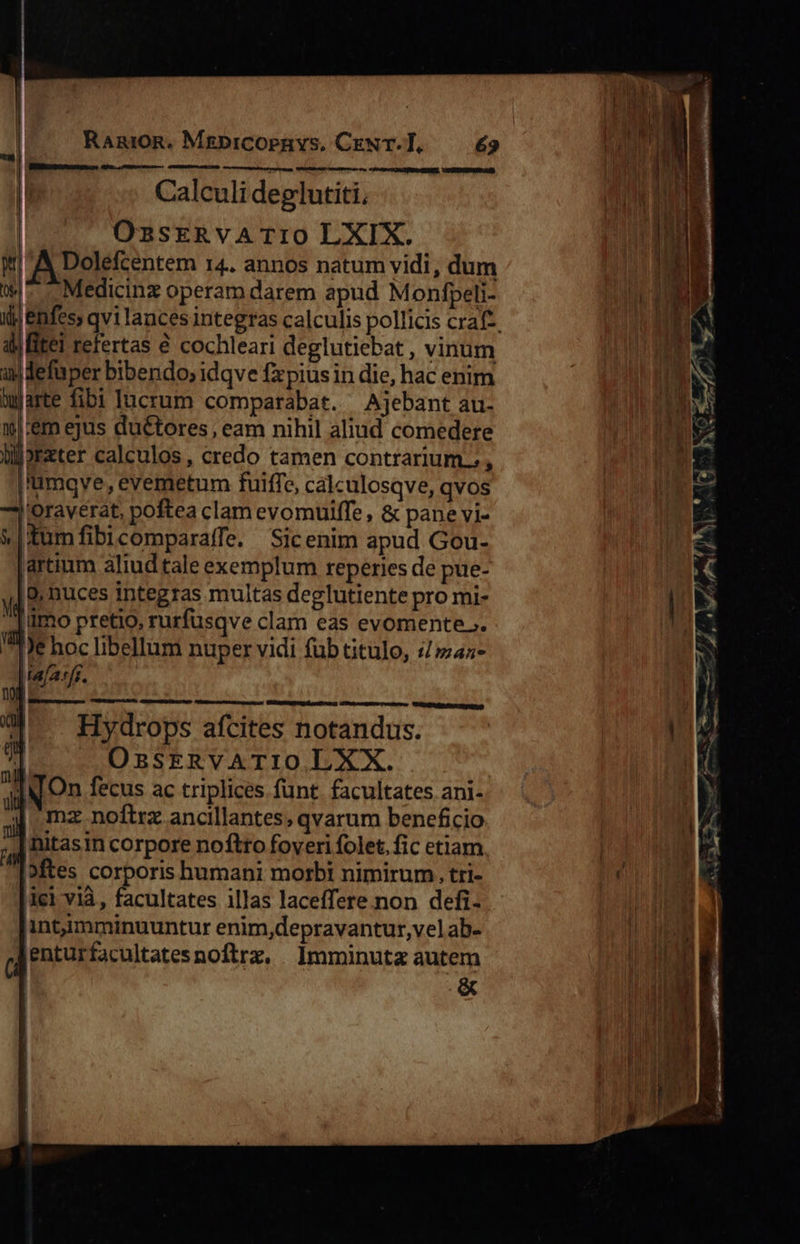 RARIOR. MEDICOPHYS. CENT. I. 69
Calculi deglutiti.
OBSERVATIO LXIX.
ADoleſcentem 14. annos natum vidi, dum
Medicinæ operam darem apud Monſpeli-
enſes, qvi lances integras calculis pollicis craſ-
ſitei refertas è cochleari deglutiebat, vinum
deſuper bibendo, idqve ſæpius in die, hac enim
arte ſibi lucrum comparabat. Ajebant au-
tem ejus ductores, eam nihil aliud comedere
præter calculos, credo tamen contrarium,
umqve, evemetum fuiſſe, calculosqve, qvos
oraverat, poſtea clam evomuiſſe, & pane vi-
tum ſibi comparaſſe. Sic enim apud Gou-
artium aliud tale exemplum reperies de pue-
o, nuces integras multas deglutiente pro mi-
imo pretio, rurſusqve clam eas evomente.
De hoc libellum nuper vidi ſub titulo, il man-
iaſaſſi.
Hydrops aſcites notandus.
OBSERVATIO LXX.
NOn ſecus ac triplices ſunt facultates ani-
mæ noſtræ ancillantes, qvarum beneficio
nitas in corpore noſtro foveri ſolet, ſic etiam
oſtes corporis humani morbi nimirum, tri-
ici viâ, facultates illas laceſſere non deſi-
int, imminuuntur enim, depravantur, vel ab-
entur facultates noſtræ. Imminutæ autem
&